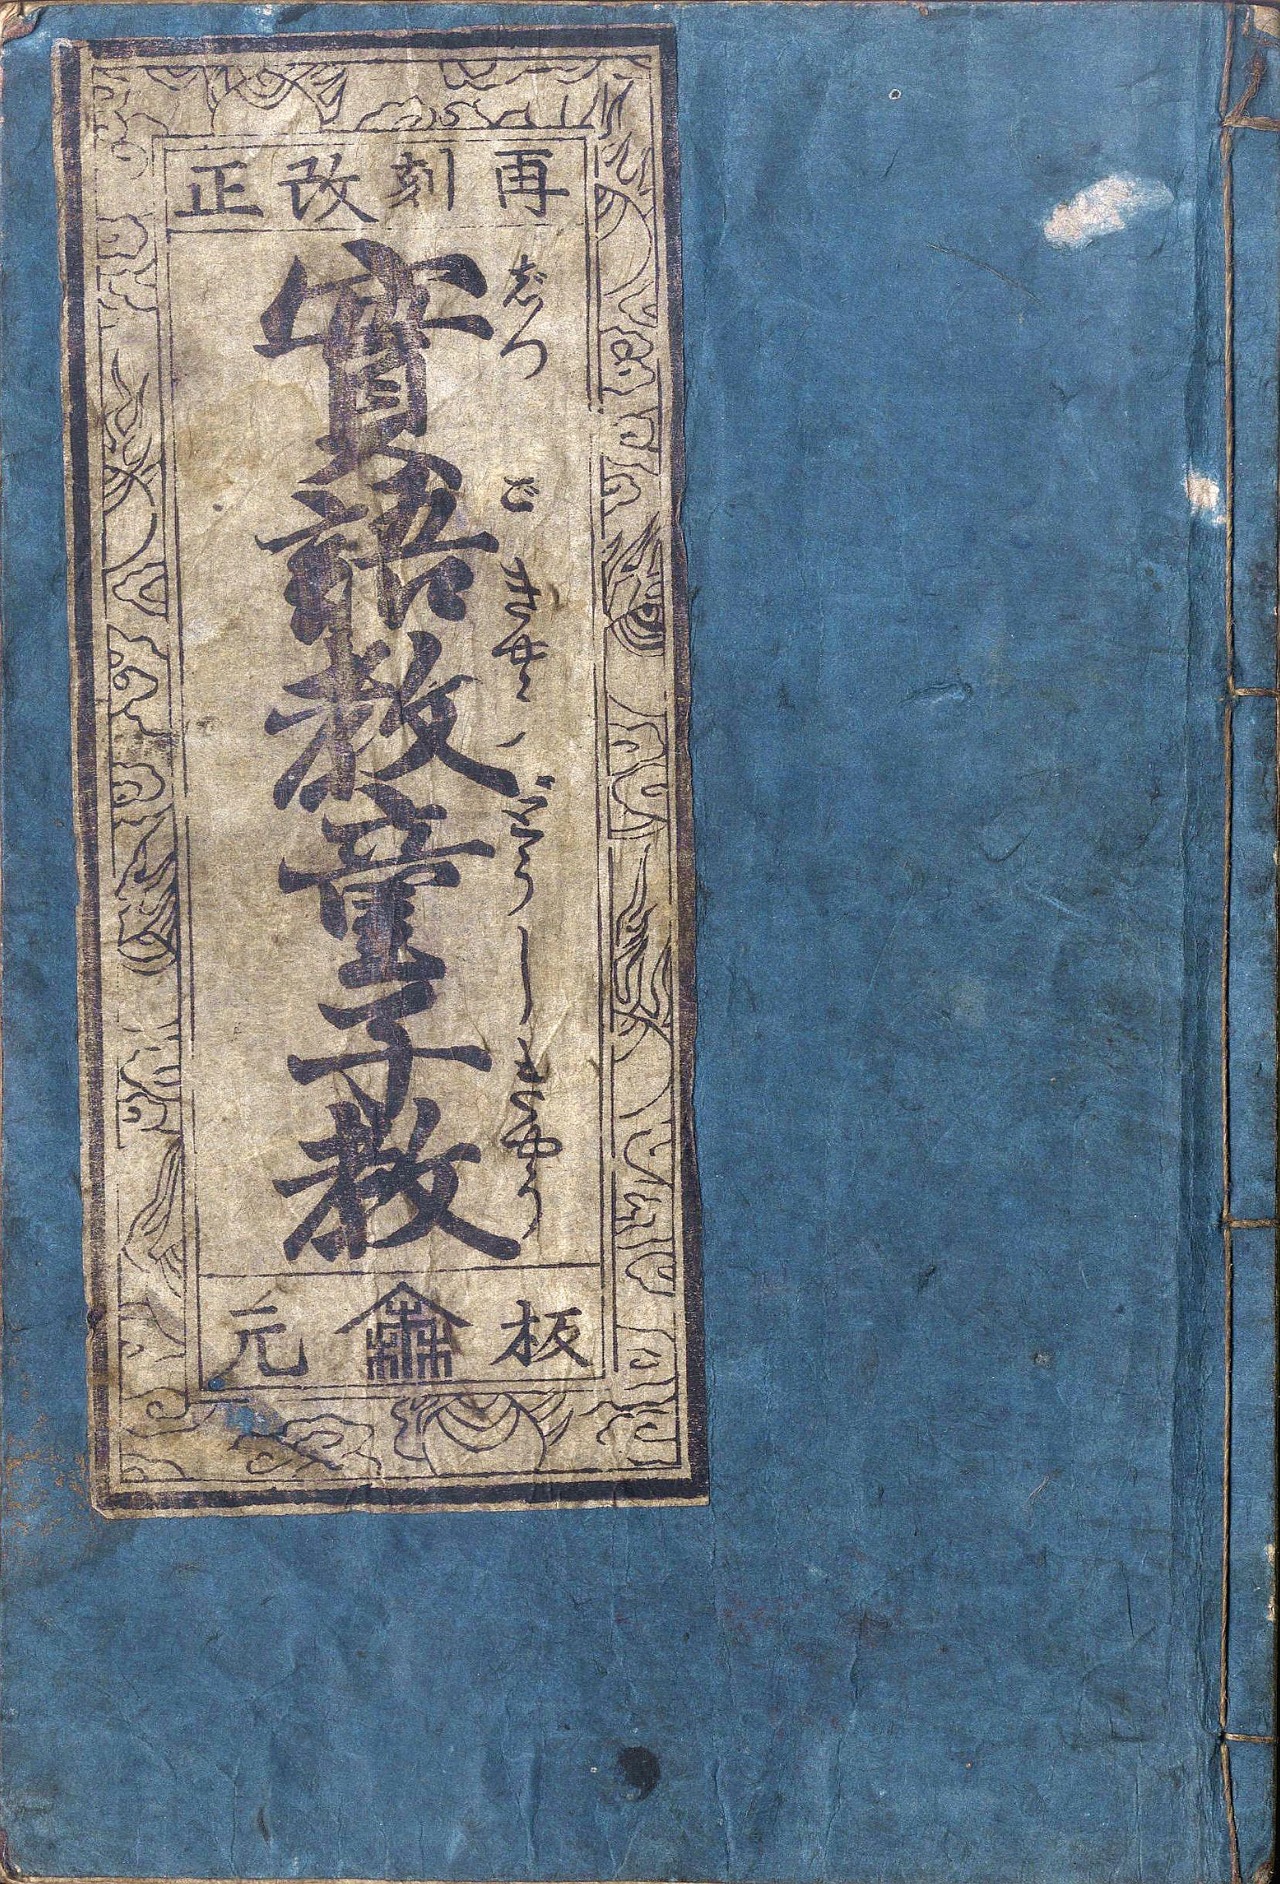 再刻改正
實語教童子教
じつごきやうどうじきやう
板元